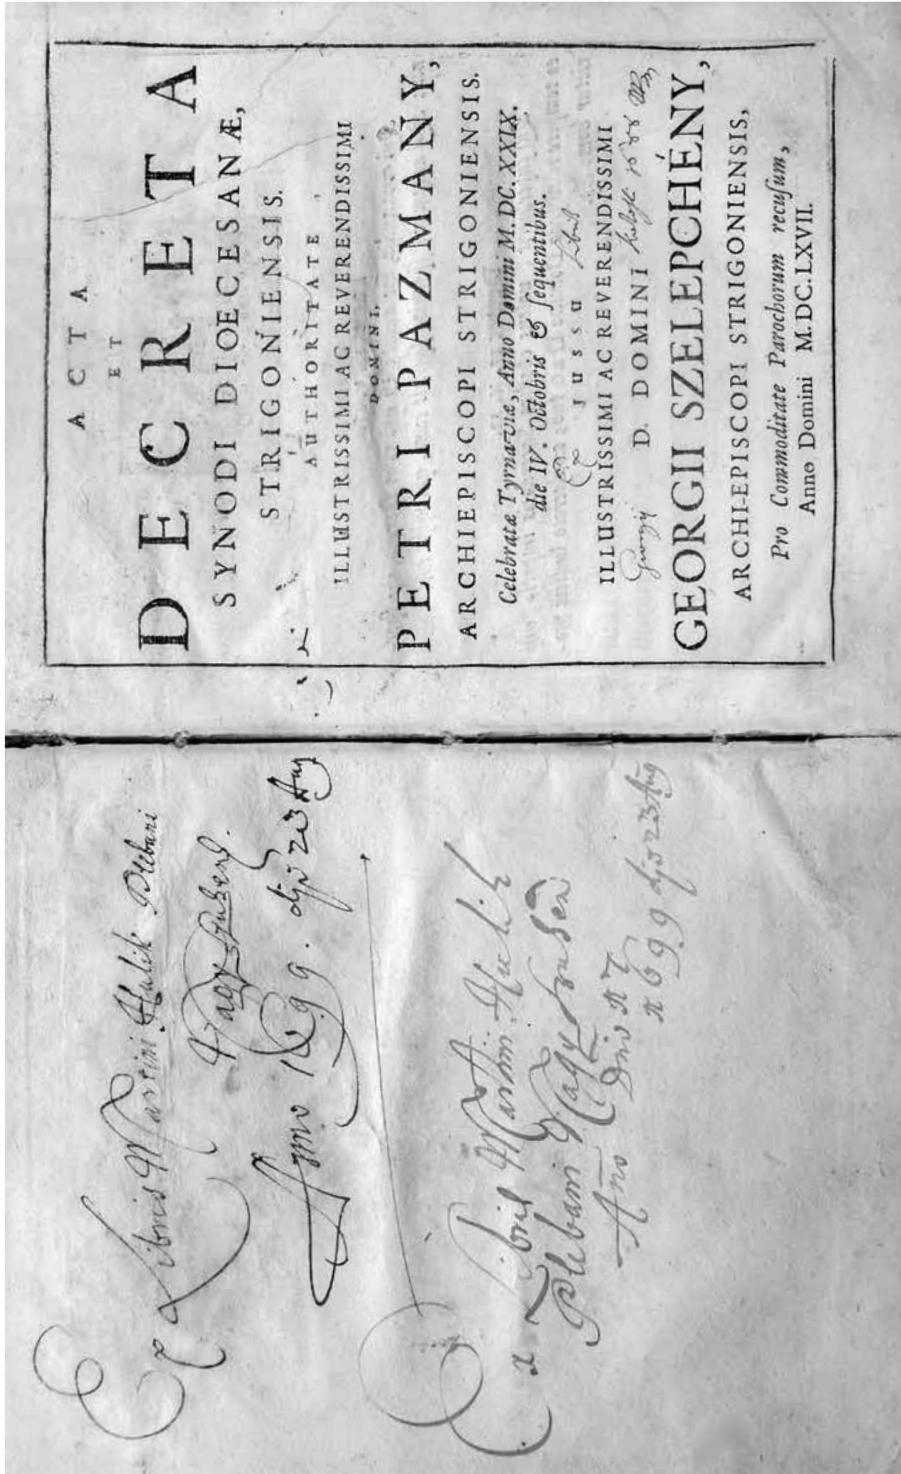 Ex Libris Martini Hulik Plebani
Nagy
Anno 1699. die 23 Aug
Ex Libris Martini Hulik
Plebani Nagy
Año Dnio
1699 die 23 Aug
ACTA
ET
DECRETA
SYNODI DIOECESANÆ,
STRIGONIENSIS.
AUTHORITATE
ILLUSTRISSIMI AC REVERENDISSIMI
DOMINI,
PETRI PAZMANY,
ARCHIEPISCOPI STRIGONIENSIS.
Celebratæ Tyrnaviæ, Anno Domini M.DC.XXIX.
die IV. Octobris & ſequentibus.
Ex JUSSU Libris
ILLUSTRISSIMI AC REVERENDISSIMI
Georgij D. DOMINI
GEORGII SZELEPCHÉNY,
ARCHI-EPISCOPI STRIGONIENSIS,
Pro Commoditate Parochorum recuſum,
Anno Domini M.DC.LXVII.